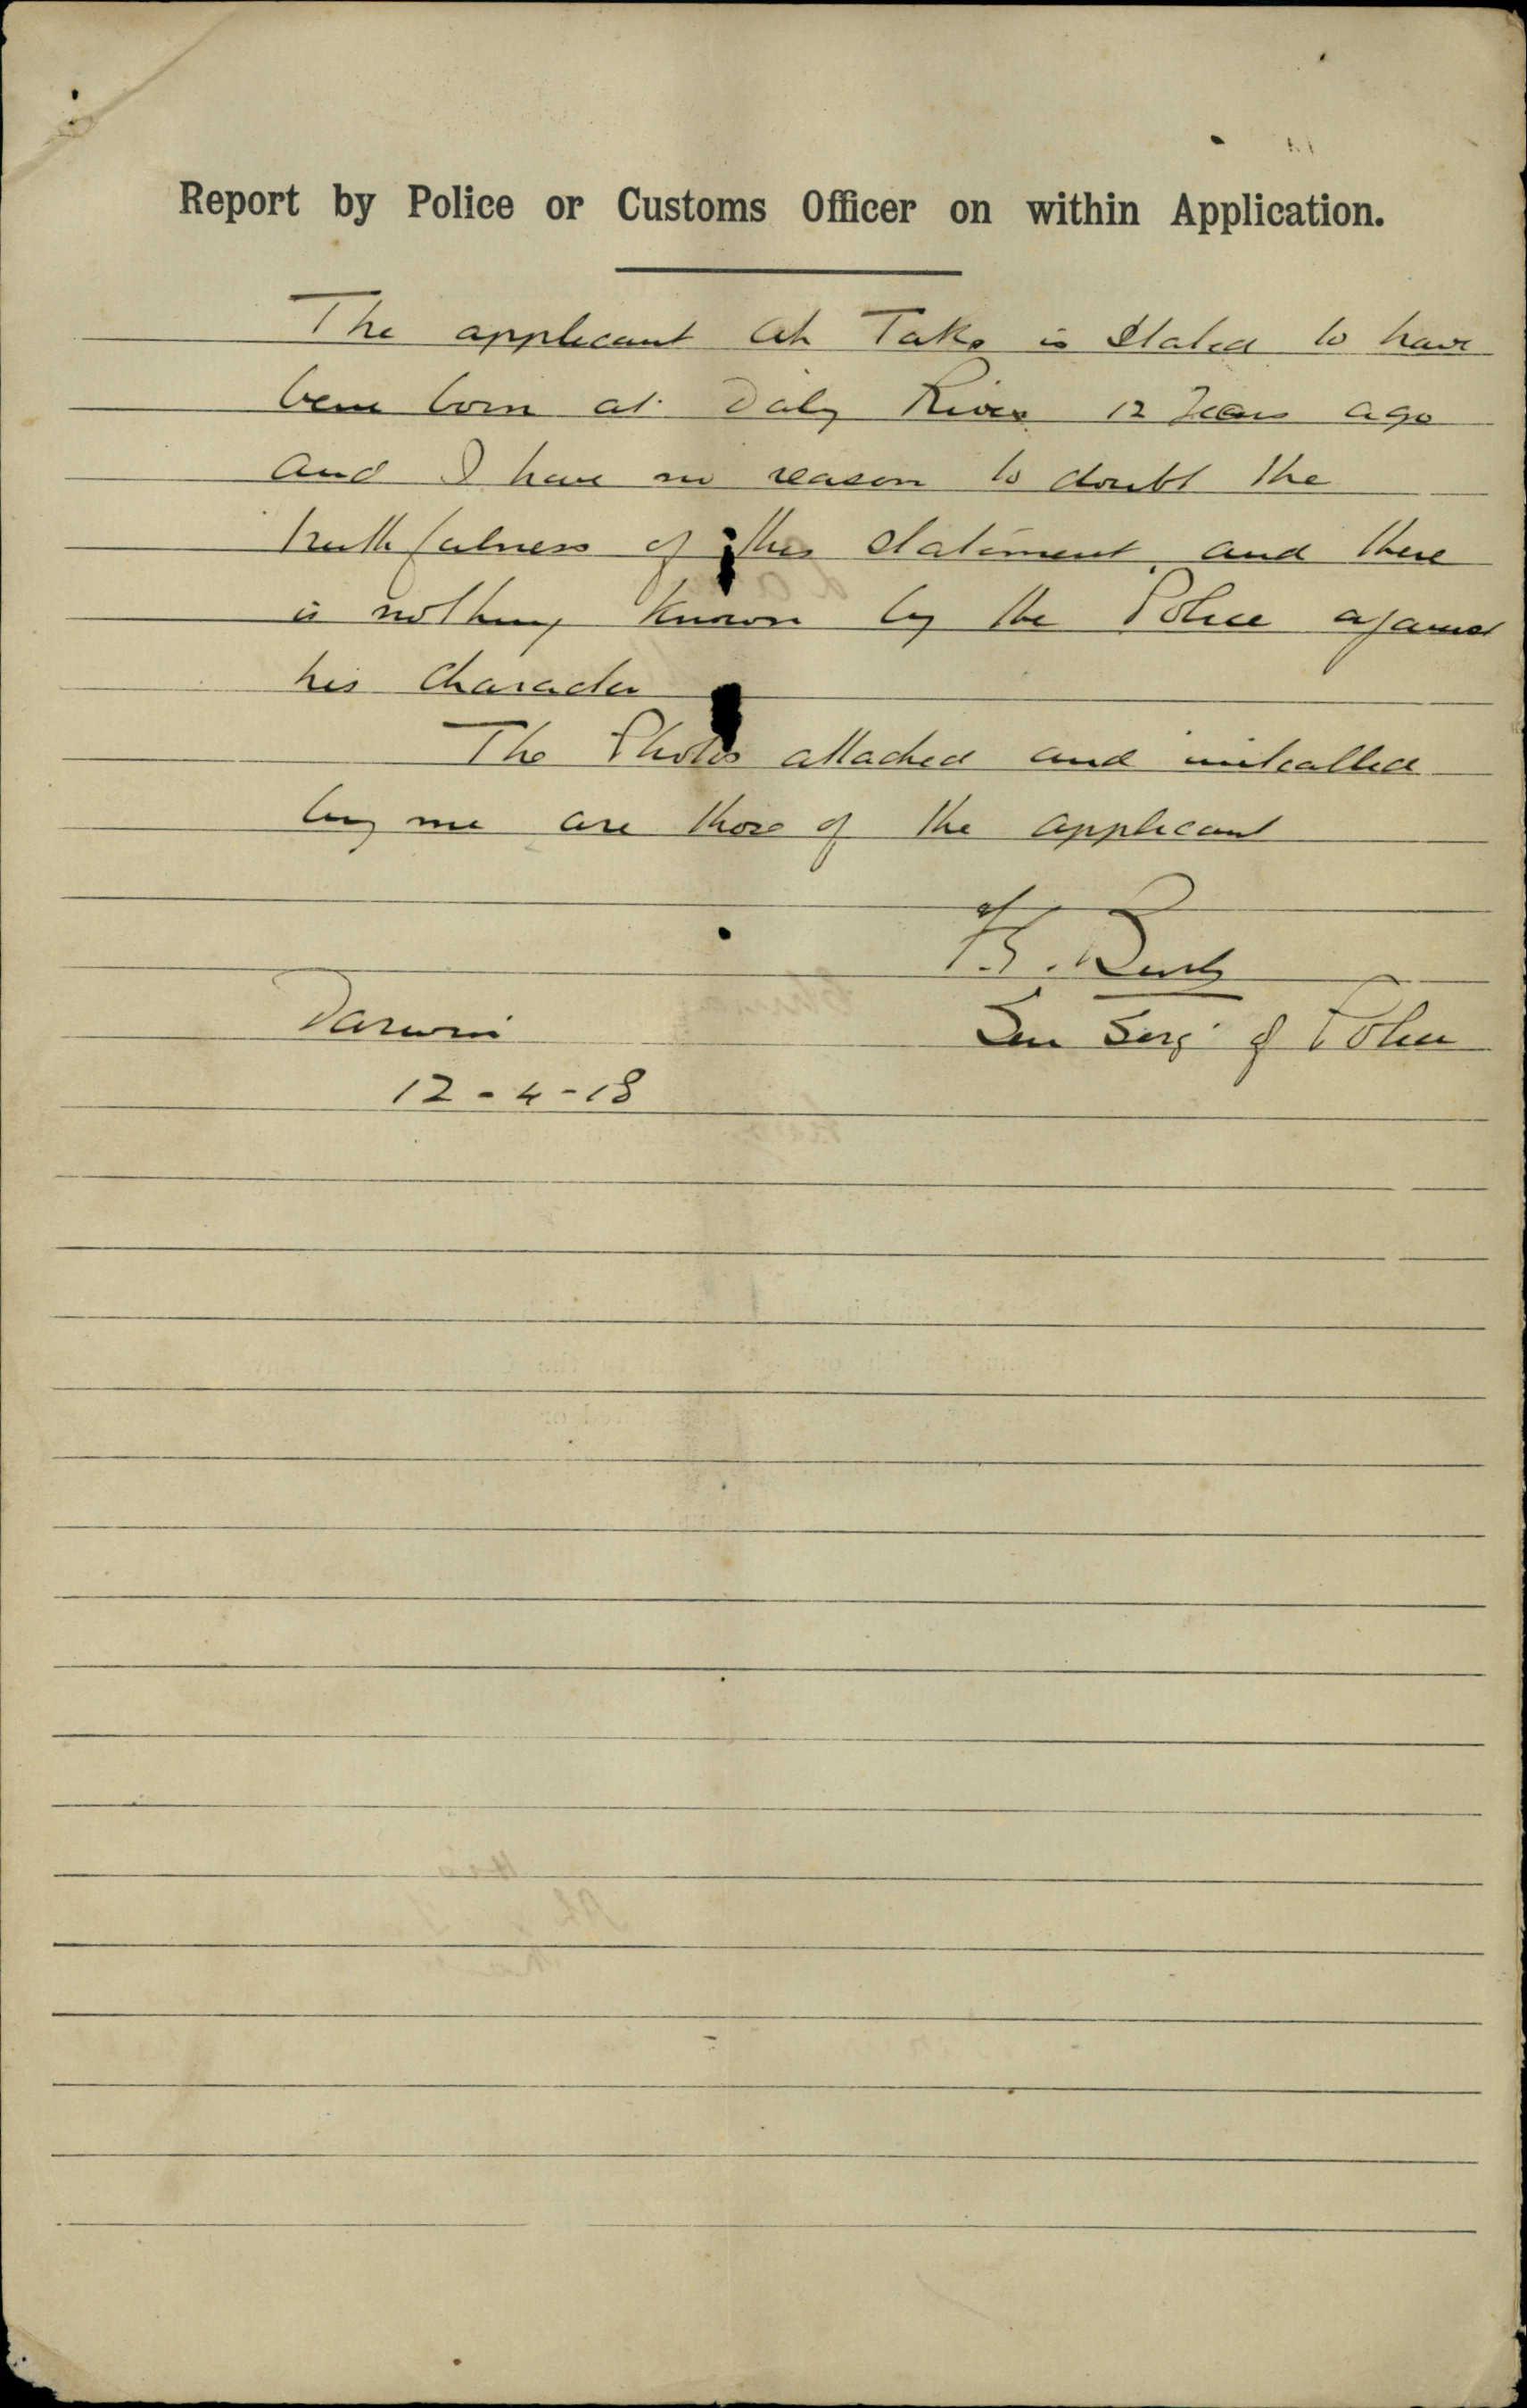 Report by Police or Customs Officer on within Application.
The applicant Ah Take is stated to have
been born at Daly River 12 Years ago
and I have no reason to doubt the
truthfulness of this statement, and there
is nothing known by the Police against
his Character
The Photos attached and initialled
by me are those of the applicant
Darwin
Sen Sergt of Police
12-4-18